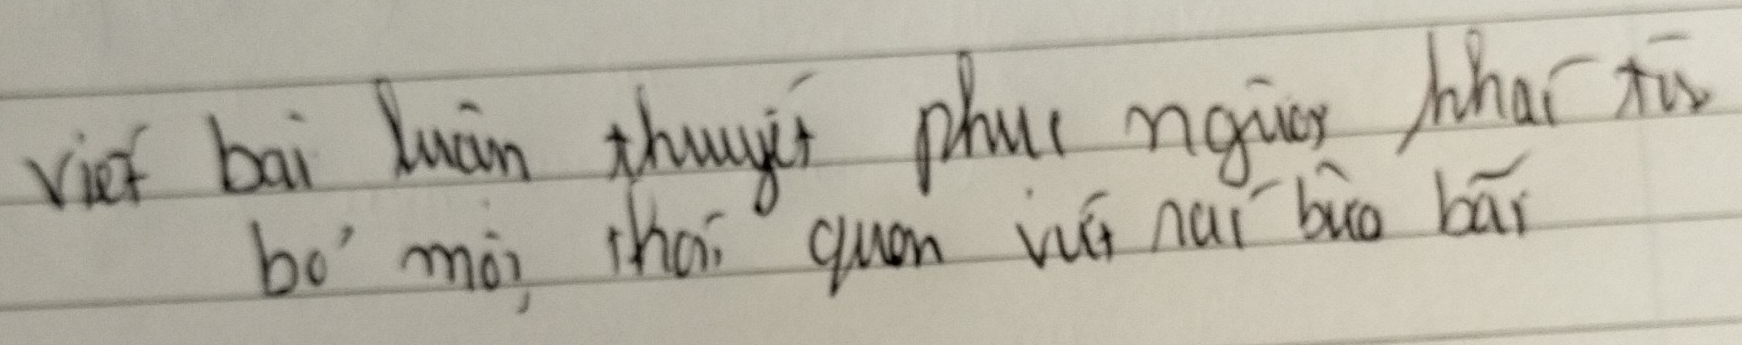 viết bài luân thuyết phục người khác từ
bỏ một thói quen vứt rác bừa bãi